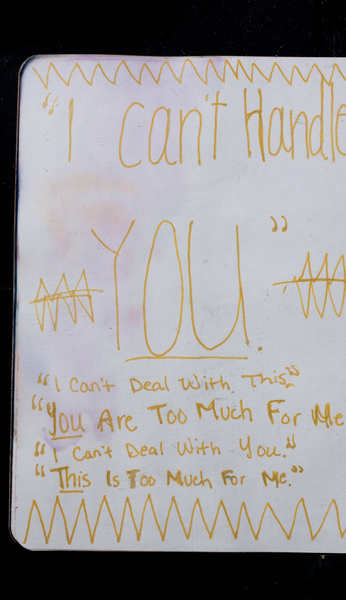 "I can't Handle
YOU."
"I Can't Deal With This."
"You Are Too Much For Me
"I Can't Deal With You."
"This Is Too Much For Me."